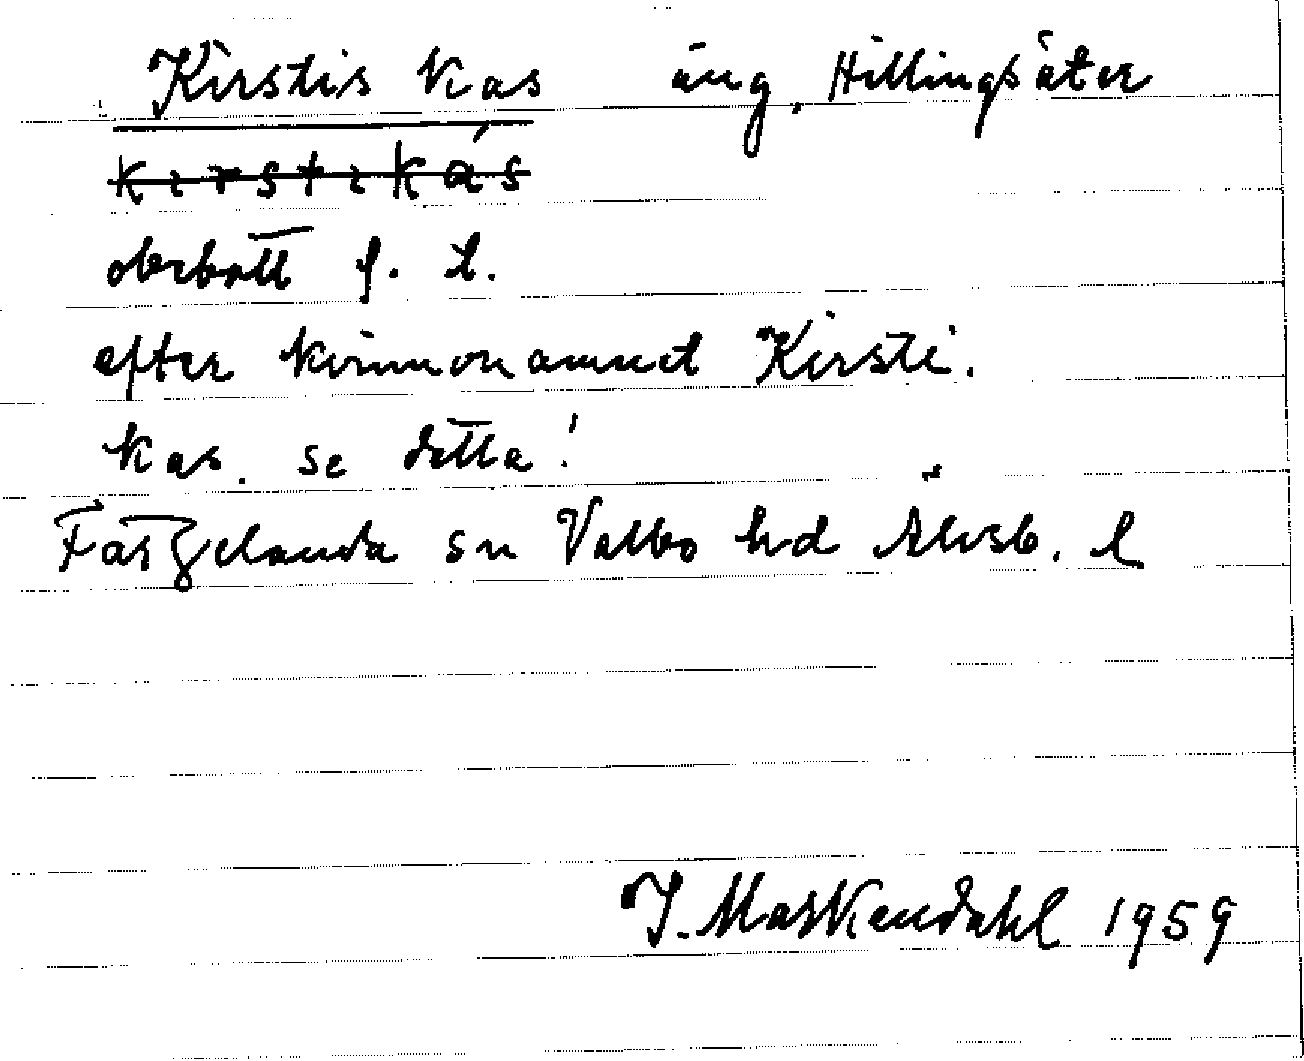 Kirstis Kas äng, Hillingsäter
kırstıkás
obebott f. t.
efter kvinnonamnet Kirsti.
Kas. se detta!
Färgelanda sn Valbo hd Älvsb. l
I. Maskendahl 1959